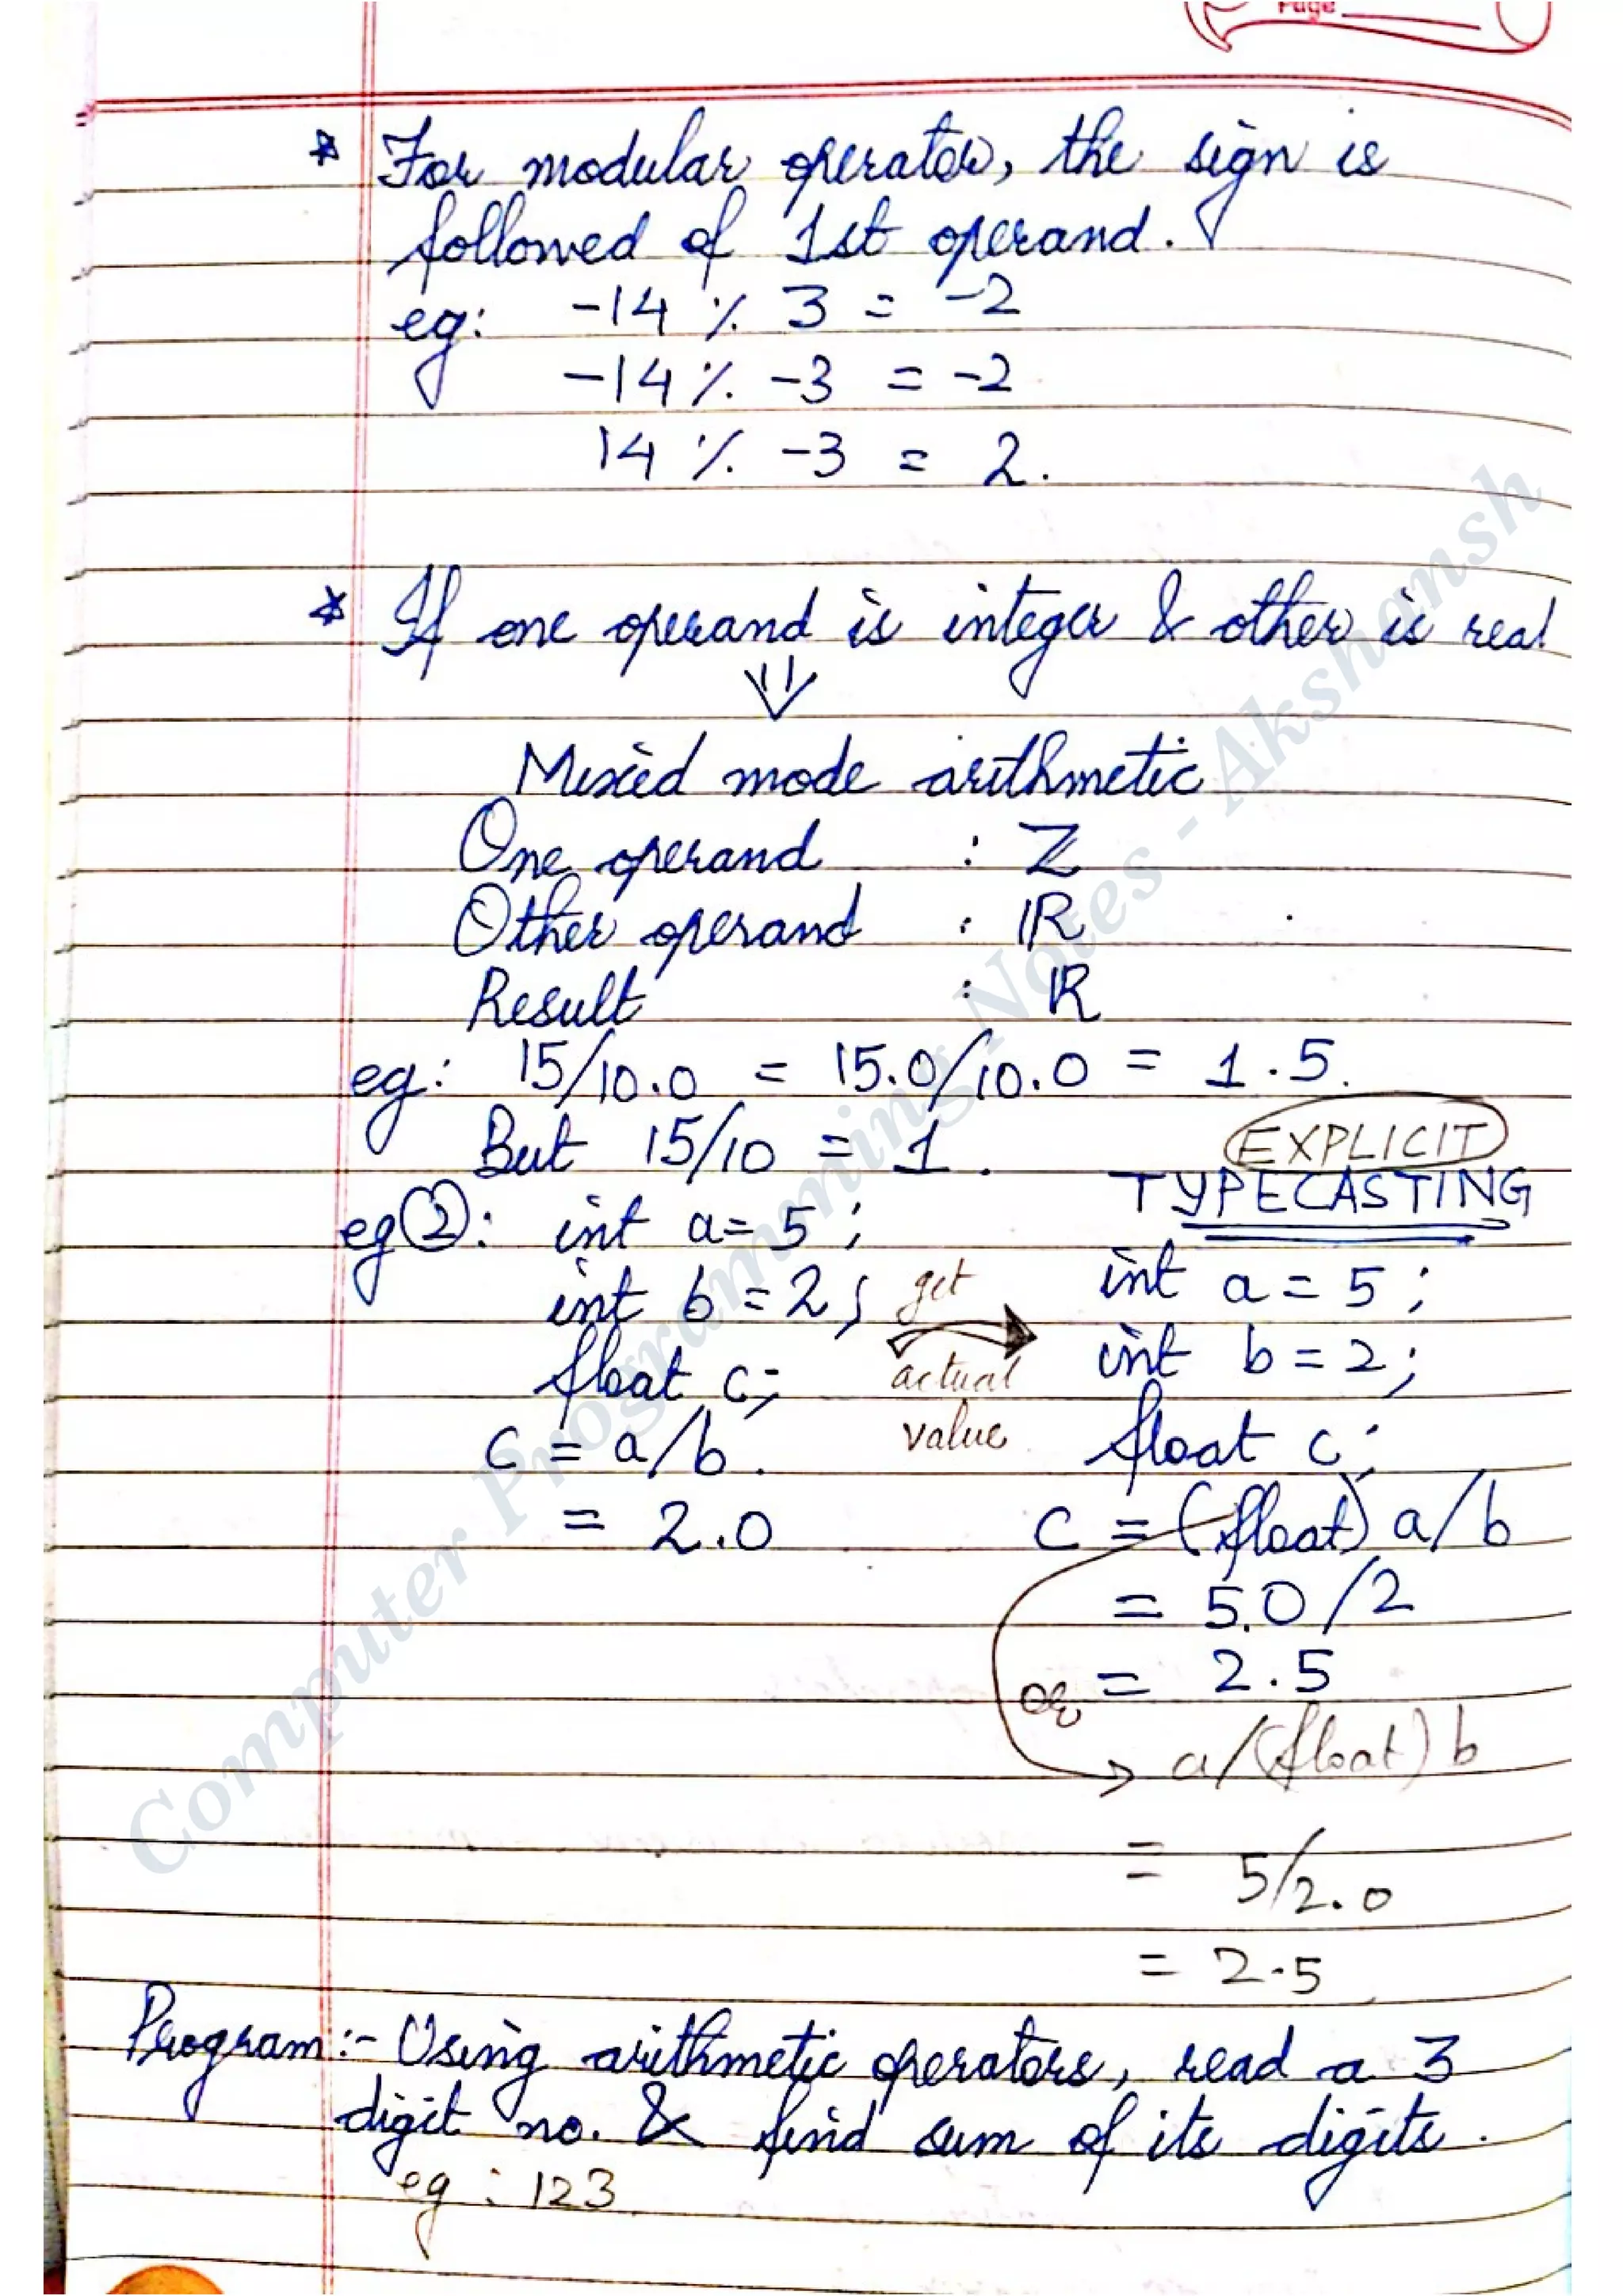 Page
* For modular operator, the sign is
followed of 1st operand.
eg: -14 % 3 = -2
-14 % -3 = -2
14 % -3 = 2.
* If one operand is integer & other is real
⇓
Mixed mode arithmetic
One operand : Z
Other operand : R
Result : R
eg: 15/10.0 = 15.0/10.0 = 1.5.
But 15/10 = 1.
eg②: int a=5;
int b=2;
float c;
c = a/b.
= 2.0
get
actual
value
EXPLICIT
TYPECASTING
int a=5;
int b=2;
float c;
c = (float) a/b
= 5.0/2
= 2.5
or
→ a/(float) b
= 5/2.0
= 2.5
Program:- Using arithmetic operators, read a 3
digit no. & find sum of its digits.
eg: 123
Computer Programming Notes - Akshansh